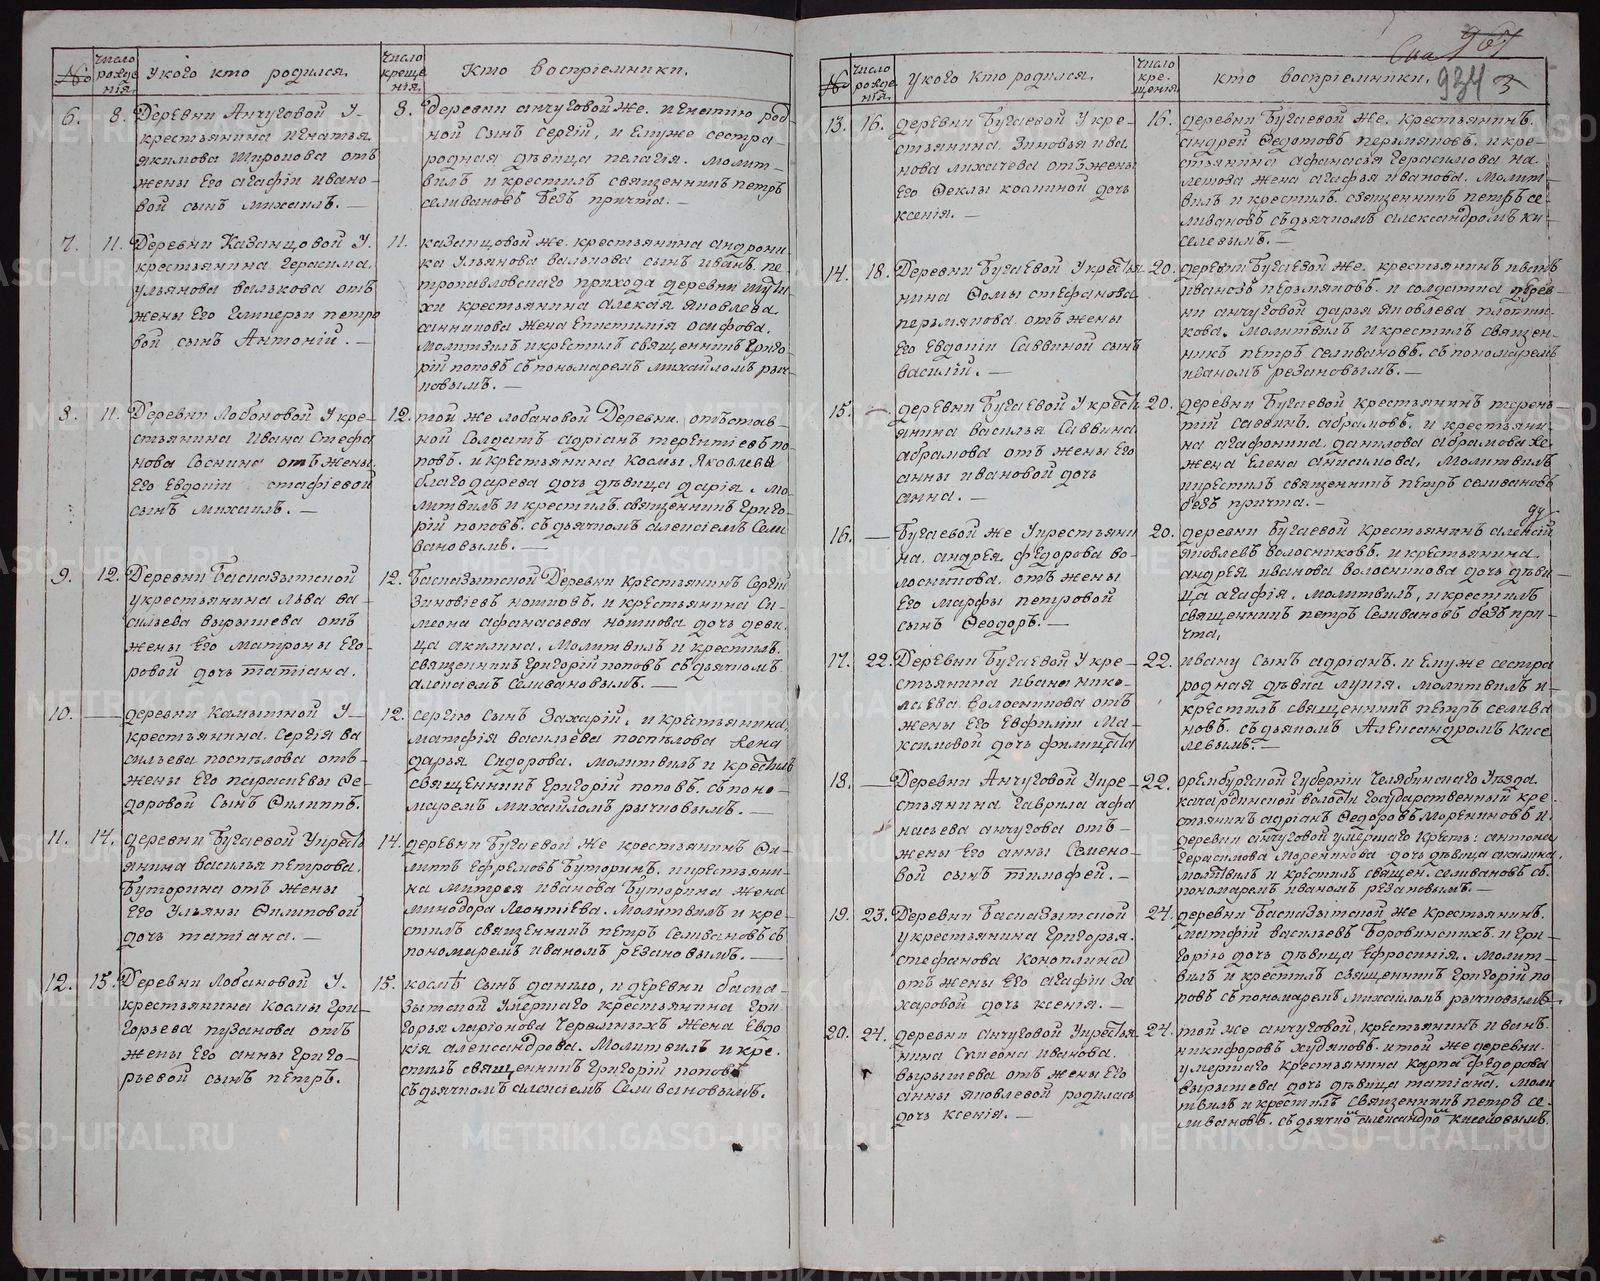 №
Число рожде нія.
У кого кто родился.
Число креще нія.
Кто воспріемники.
6.
8.
Деревни Анчуговой у
крестьянина игнатья
якимова широнова отъ
жены его агафіи ивано-
вой сынъ михаилъ. —
8.
деревни анчуговой же. игнатію род
ной сынъ сергій, и емуже сестра
родная дѣвица пелагія. молит-
вилъ и крестилъ священникъ петръ
селивановъ безъ причта. —
7.
11.
Деревни Казанцовой у.
крестьянина герасима
ульянова валькова отъ
жены его гликерьи петро
вой сынъ Антоній. —
11.
казанцовой же. крестьянина андрони-
ка ульянова валькова сынъ иванъ. пе-
тропавловскаго прихода деревни
крестьянина алексія яковлева
санникова жена епистимія осифова.
молитвилъ и крестилъ священникъ григо-
рій поповъ съ пономаремъ михайломъ рыч-
ковымъ. —
8.
11.
Деревни Лобановой у кре-
стьянина ивана стефа
нова соснина отъ жены
его евдокіи стафіевой
сынъ михаилъ. —
12.
той же лобановой Деревни. отъстав-
ной солдатъ адріанъ терентіевъ по-
повъ. и крестьянина космы яковлева
благодарева дочь дѣвица дарія. мо-
литвилъ и крестилъ священникъ григо-
рій поповъ. съ дьячкомъ алексіемъ сели
вановымъ. —
9.
12.
Деревни Басказытской
у крестьянина льва ва-
сильева вырышева отъ
жены его матроны его-
ровой дочь татіана.
12.
Басказытской Деревни крестьянинъ сергій
зиновіевъ котковъ. и крестьянина си-
меона афанасьева коткова дочь деви
ца акилина. молитвилъ и крестилъ.
священникъ григорій поповъ съ дьячкомъ
алексіемъ селивановымъ. —
10.
—
деревни камытной у-
крестьянина. сергія ва
сильева поспѣлова отъ-
жены его параскевы ѳе-
доровой сынъ Филиппъ.
12.
сергію сынъ захарій, и крестьянина
матфія васильева поспѣлова жена
дарья сидорова. молитвилъ и крестилъ
священникъ григорій поповъ. съ поно-
маремъ михайломъ рычковымъ. —
11.
14.
деревни Бугаевой у крестъ
янина василья петрова
буторина отъ жены
его ульяны филиповой
дочь татіана. —
14.
деревни бугаевой же крестьянинъ фи-
липъ ефремовъ буторинъ. и крестьяни-
на митрея иванова буторина жена
минодора леонтіева. молитвилъ и кре-
стилъ священникъ петръ селивановъ съ
пономаремъ иваномъ резановымъ. —
12.
15.
Деревни Лобановой у.
крестьянина космы гри-
горьева пузанова отъ
жены его анны григо-
рьевой сынъ петръ.
15.
космѣ сынъ данило, и деревни баска-
зытской умершаго крестьянина гри
горья ларіонова черемныхъ жена евдо
кія александрова. молитвилъ и кре-
стилъ священникъ григорій поповъ
съ дьячкомъ алексіемъ селивановымъ.
967
934 3
№
Число рожде нія.
У кого кто родился.
Число кре- щенія.
кто воспріемники.
13.
16.
деревни бугаевой у кре-
стьянина. зиновья ива
нова лихачева отъ жены
его Феклы козминой дочь
ксенія. —
16.
деревни бугаевой же. крестьянинъ.
андрей Федотовъ пермяковъ. и кре-
стьянина афанасья герасимова на-
летова жена агафья иванова. молит-
вилъ и крестилъ. священникъ петръ се-
ливановъ съ дьячкомъ александромъ ки-
селевымъ. —
14.
18.
Деревни Бугаевой у крестья
нина Фомы стефанова
перьмякова. отъ жены
его евдокіи саввиной сынъ
василій. —
20.
деревни бугаевой же. крестьянинъ иванъ
ивановъ перьмяковъ. и солдатка дерев-
ни анчуговой дарья яковлева плотни-
кова. молитвилъ и крестилъ священ-
никъ петръ селивановъ. съ пономаремъ
иваномъ резановымъ. —
15.
—
деревни бугаевой у кресть
янина василья саввина
абрамова отъ жены его
анны ивановой дочь
анна. —
20.
деревни бугаевой крестьянинъ терень-
тій саввинъ. абрамовъ. и крестьяни-
на агафоника. данилова абрамова же.
жена елена анисимова. молитвилъ
и крестилъ священникъ петръ селивановъ
безъ причта. —
16.
—
Бугаевой же у крестьяни
на андрея федорова во-
лосникова. отъ жены
его марфы петровой
сынъ Феодоръ. —
20.
деревни бугаевой крестьянинъ алексій
яковлевъ волосниковъ. и крестьянина
андрея иванова волосникова дочь дѣви-
ца агафія. молитвилъ, и крестилъ
священникъ петръ селивановъ безъ при-
чта.
17.
22.
Деревни бугаевой у кре-
стьянина ивана нико-
лаева волосникова отъ
жены его евфиміи ма-
ксимовой дочь филицата
22.
ивану сынъ адріанъ. и емуже сестра
родная дѣвица лукія. молитвилъ и-
крестилъ священникъ петръ селива
новъ. съ дьякомъ Александромъ кисе
левымъ. —
18.
—
Деревни Анчуговой у кре-
стьянина гаврила афа
насьева анчугова отъ-
жены его анны семено-
вой сынъ тимофей. —
22.
оренбургской губерніи челябинскаго уѣзда.
качардинской волости государственный кре-
стьянинъ адріанъ Федоровъ моренниковъ и.
деревни анчуговой умершаго кресть: антона
герасимова моренникова дочь дѣвица акилина.
молитвилъ и крестилъ священ. селивановъ съ.
пономаремъ иваномъ резановымъ. —
19.
23.
Деревни Басказытской
у крестьянина григорья.
стефанова коноплина
отъ жены его агафіи за
харовой дочь ксенія. —
24.
деревни басказытской же крестьянинъ.
матфій васильевъ боровинскихъ. и гри-
горію дочь дѣвица ефросинія. молит-
вилъ и крестилъ священникъ григорій по
повъ съ пономаремъ михайломъ рычковымъ.
20.
24.
деревни анчуговой у крестья
нина симеона иванова.
вырышева отъ жены его
анны яковлевой родилась
дочь ксенія. —
24.
той же анчуговой, крестьянинъ иванъ.
никифоровъ худяковъ. и той же деревни.
умершаго крестьянина карпа федорова
вырышева дочь дѣвица татіана. моли
твилъ и крестилъ священникъ петръ се-
ливановъ. съ дьячкомъ александромъ киселевымъ.
METRIKI.GASO-URAL.RU